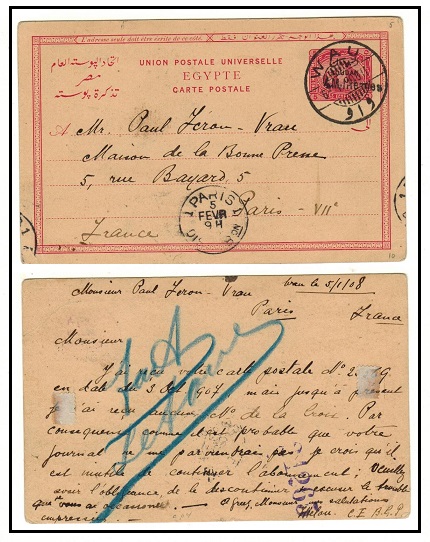 L'adresse seule doit être écrite de ce côté.
اتحاد البوستة العام
مصر
تذكرة بوستة
UNION POSTALE UNIVERSELLE
EGYPTE
CARTE POSTALE
WAU
واو
A Mr. Paul Féron-Vrau
Maison de la Bonne Presse
5, rue Bayard, 5
Paris - VIIe
France
PARIS
5
FEVR
9H
Monsieur Paul Feron-Vrau
Wau le 5/1/08
Paris, France
Monsieur
J'ai reçu votre carte postale No. 2
en date du 3 Oct 907, mais jusqu'à présent
je n'ai reçu aucun No de la Croix. Par
conséquent, comme il est probable que votre
journal ne me parviendrais pas je crois qu'il
est inutile de continuer l'abonnement; Veuillez
avoir l'obligeance de la discontinuer, & excuser le trouble
que je vous ai occasionné. Agréez, Monsieur, mes salutations
empressées.